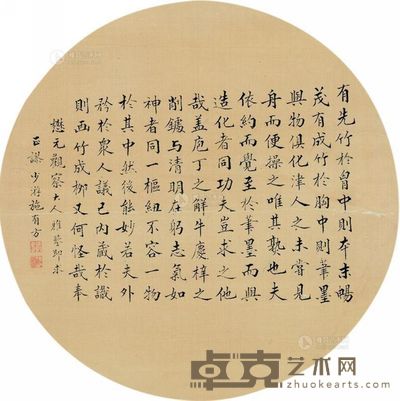 有先竹於胷中則本末暢
茂有成竹於胸中則筆墨
與物俱化津人之未嘗見
舟而便操之唯其熟也夫
依約而覺至於筆墨而與
造化者同功夫豈求之他
哉蓋庖丁之解牛慶梓之
削鐻與清明在躬志氣如
神者同一樞紐不容一物
於其中然後能妙若夫外
矜於衆人議己內藏於識
則西竹成柳又何怪哉奉
懋元觀察大人雅鑒即求
正謬 少游施有方
卓克艺术网
zhuokearts.com